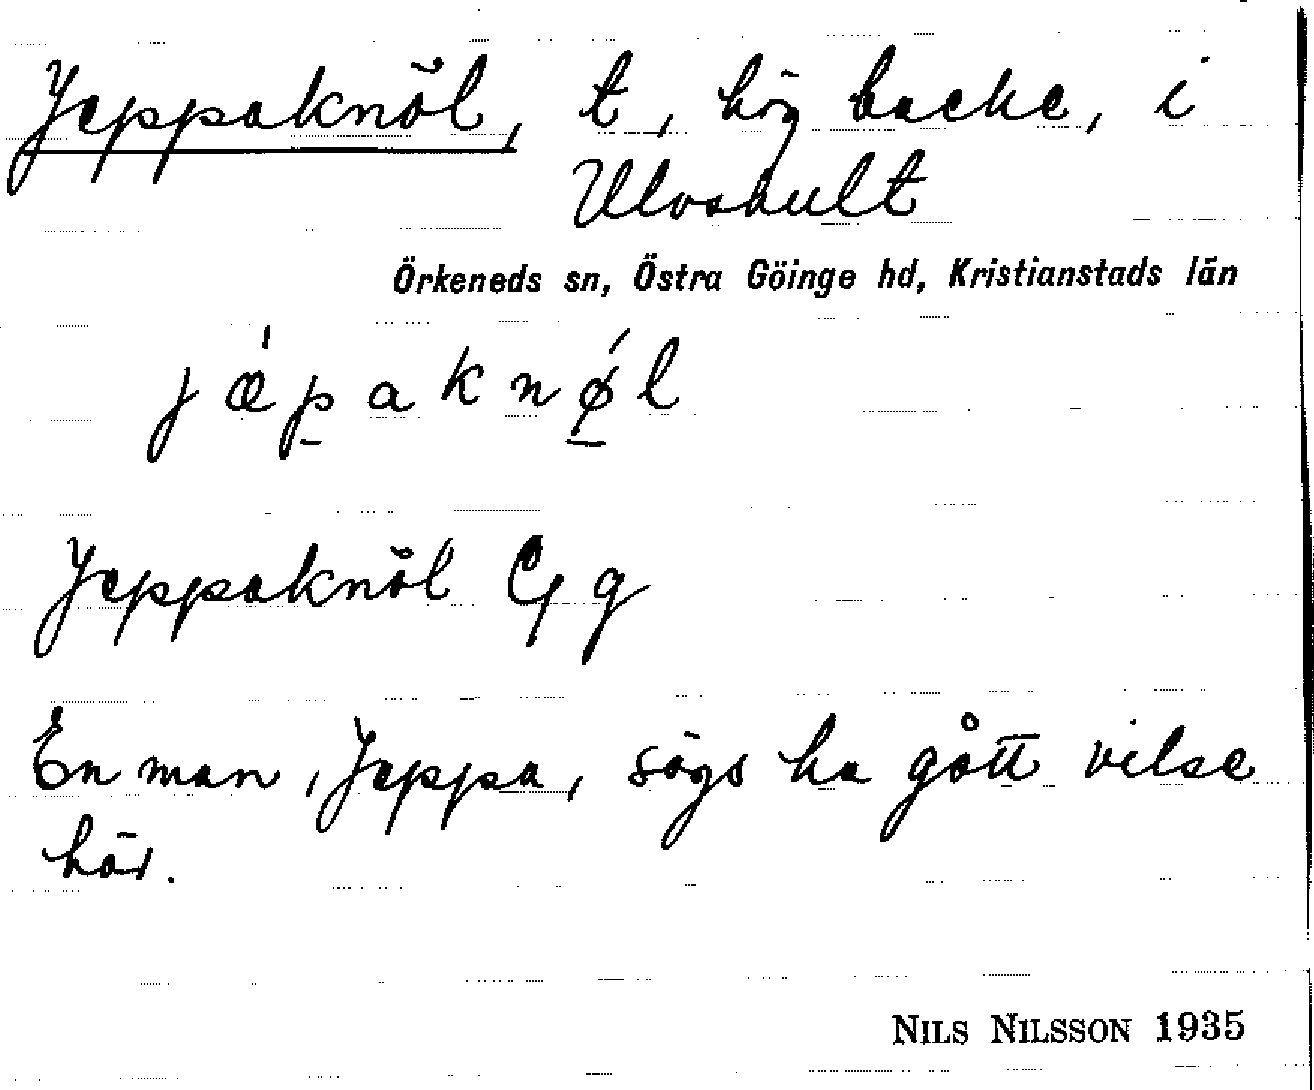 Jeppaknöl, t, hög backe, i
Ulvshult
Örkeneds sn, Östra Göinge hd, Kristianstads län
jæpaknøl
Jeppaknöl
En man, Jeppa, sägs ha gått vilse
här.
NILS NILSSON 1935